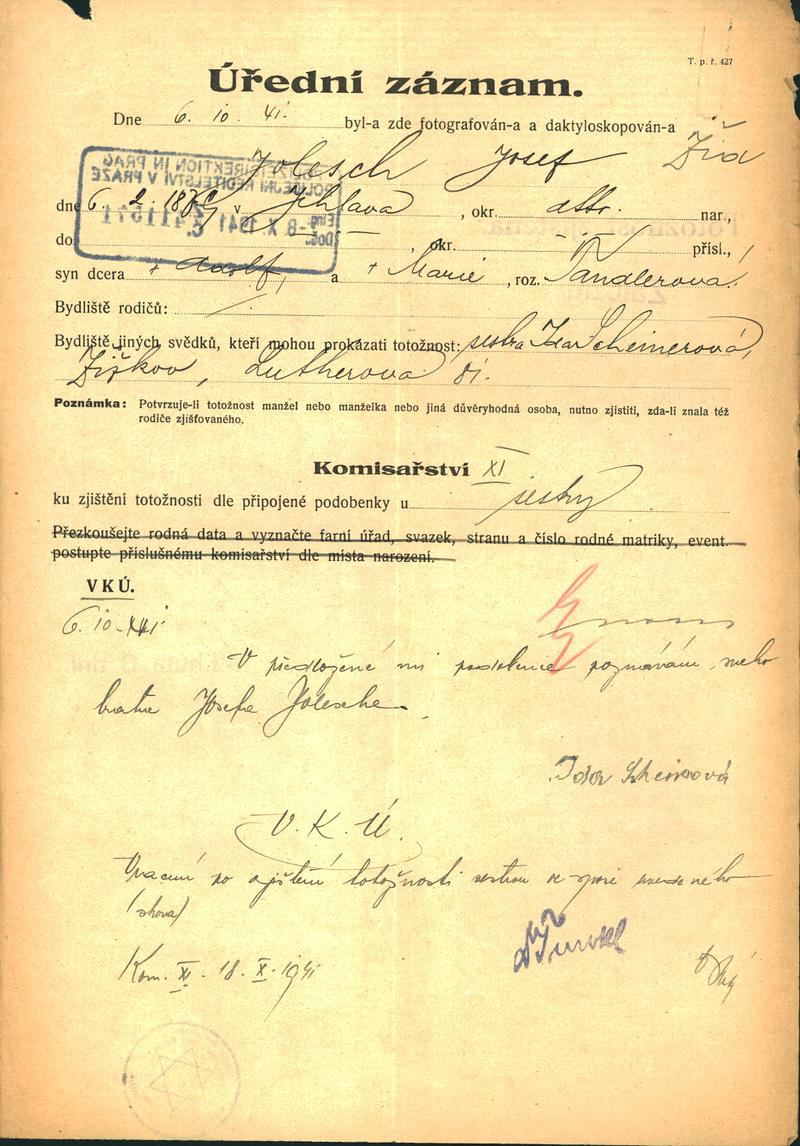 T. p. ř. 427
Úřední záznam.
Dne 6. 10. 41. byl-a zde fotografován-a a daktyloskopován-a
Jolesch Josef Žid
dne 6. 2. v Jihlava , okr. nar.,
do , okr. přísl.,
syn dcera + Adolf, a + Marie , roz. Tandlerova.
Bydliště rodičů:
Bydliště jiných svědků, kteří mohou prokázati totožnost: sestra Ida Scheinerová,
Žižkov, Lutherova 81.
Poznámka: Potvrzuje-li totožnost manžel nebo manželka nebo jiná důvěryhodná osoba, nutno zjistiti, zda-li znala též
rodiče zjišťovaného.
Komisařství XI
ku zjištění totožnosti dle připojené podobenky u sestry
Přezkoušejte rodná data a vyznačte farní úřad, svazek, stranu a číslo rodné matriky, event.
postupte příslušnému komisařství dle místa narození.
VKÚ.
6. 10.
V předložené mi podobence poznávám svého
bratra Josefa Jolesche.
Ida Scheinerová
V. K. Ú.
Vrácení po zjištění totožnosti sestrou
(shora)
Kom. XI. 18. X. 1941
POLICEJNÍ ŘEDITELSTVÍ V PRAZE
Eing.
Došlo
-8. X. 1941